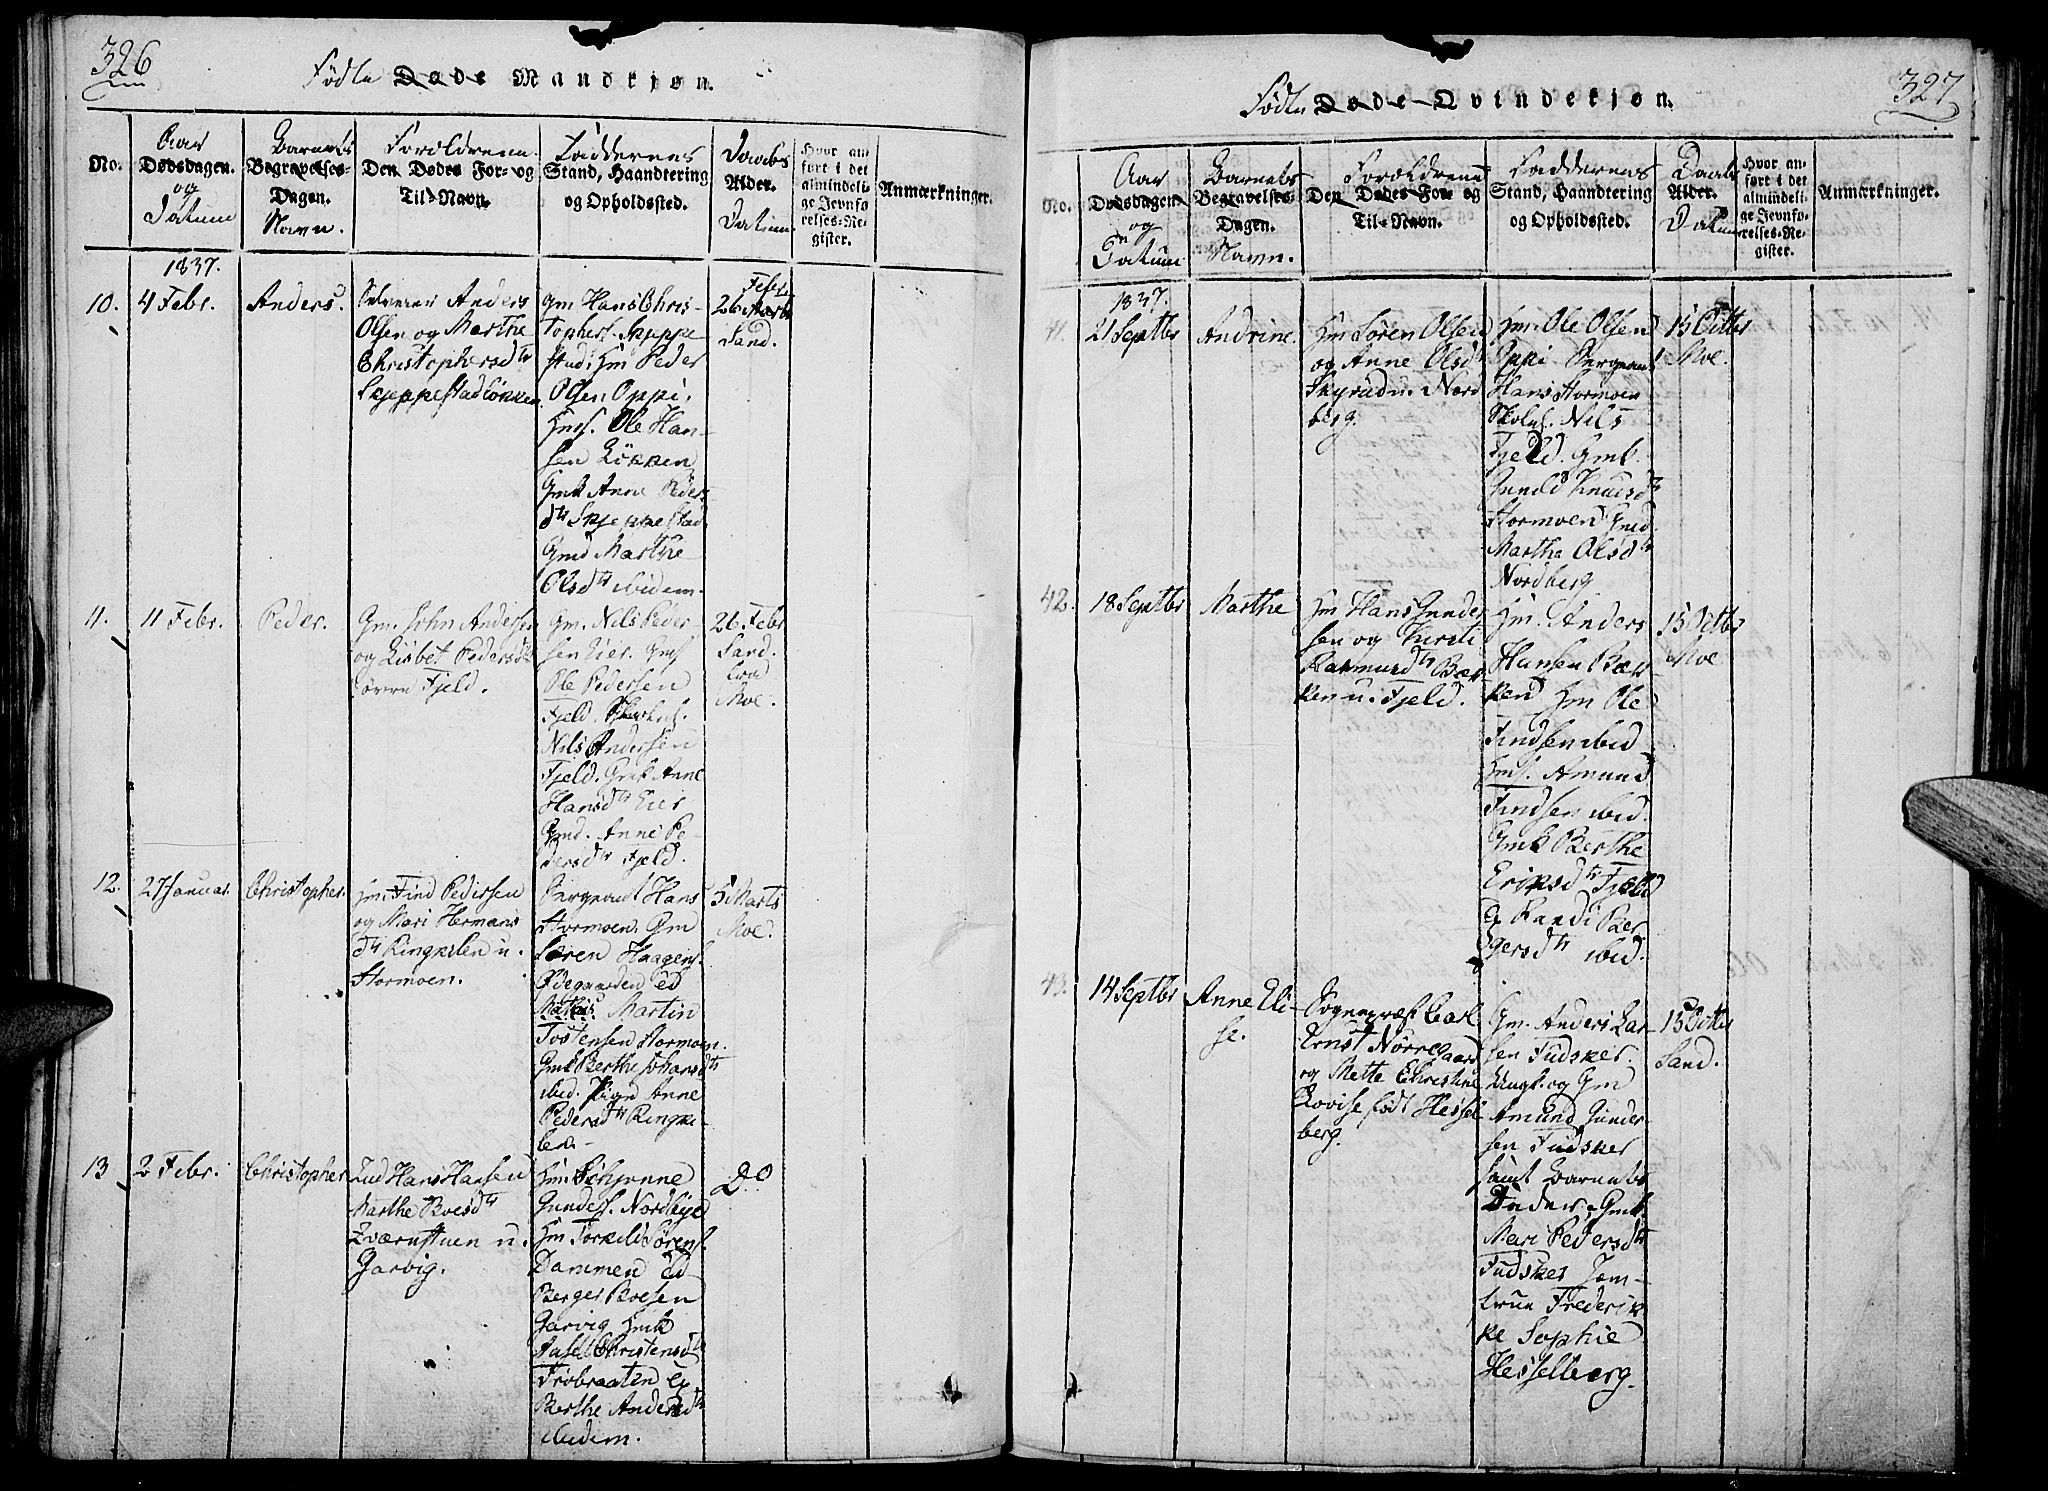 326
Fødte Døde Mandkjøn.
No.
Aar
Dødsdagen.
og
Datum
Barnets
Begravelses-
Dagen.
Navn.
Forældrene
Den Dødes For- og
Til-Navn.
Faddernes
Stand, Haandtering
og Opholdssted.
Daabs
Alder.
Datum
Hvor an-
ført i det
almindeli-
ge Jevnfø-
relses-Re-
gister.
Anmærkninger.
1837.
10.
4 Febr.
Anders
Anders
Olsen og Marthe
Christophersdtr
Skjeppestadløkken
Gm Hans Chris-
tophers. Skjeppe-
stad; Hm Peder
Olsen Oppi,
Hms. Ole Han-
sen Løkken
Gmk Anne Peders-
dtr Skjeppestad
Gmd Marthe
Olsdtr ibidem.
Febr
26 Marts
Sand.
11.
11 Febr.
Peder.
Gm. John Andersen
og Lisbet Pedersdtr
Fjeld.
Gm. Nils Peder-
sen Eier. Gms
Ole Pedersen
Fjeld.
Nils Andersen
Fjeld. Gmk Anne
Hansdtr Eier
Gmd. Anne Pe-
dersdtr Fjeld.
26 Febr
Sand.
Moe.
12.
27 Januar.
Christopher.
Hm. Find Pedersen
og Mari Hermans
dtr Ringkilen u.
Stormoen.
Sergeant Hans
Stormoen. Gm
Søren Haagens.
Ødegaarden Ed
Martin
Tostensen Stormoen.
Gmk Berthe Johansdtr
ibid. Pigen Anne
Pedersdtr Ringki-
len.
5 Marts
Moe.
13
2 Febr.
Christopher
Ind Hans Hansen
Marthe Boesdtr
Qværnstuen u.
Garvig.
Hm. Schjønne
Gunders. Nordbye
Hm Torkild Sørens.
Dammen Ed
Berger Boesen
Garvig Hmk
Christensdtr
Frøbraaten Ep
Berthe Andersdtr
ibidem.
Do
327
Fødte Døde Qvindekjøn.
No.
Aar
Dødsdagen
og
Datum
Barnets
Begravelses-
Dagen.
Navn.
Forældrene
Den Dødes For- og
Til-Navn.
Faddernes
Stand, Haandtering
og Opholdssted.
Daabs
Alder.
Datum
Hvor an-
ført i det
almindeli-
ge Jevnfø-
relses-Re-
gister.
Anmærkninger.
1837.
41.
21 Septbr
Andrine.
Hm Søren Olsen
og Anne Olsdtr
Skyrud u. Nord
berg.
Hm. Ole Olsen
Oppi Sergeant
Hans Stormoen
Skolel. Nils
Fjeld. Gmk.
Gunild Knudsdtr
Stormoen Gmd.
Marthe Olsdtr
Nordberg
15 Octbr
Moe.
42.
18 Septbr
Marthe
Hm Hans Gunder
sen og Kersti
Aamundsdtr Bæk-
ken u. Fjeld.
Hm. Anders
Hansen Bæk-
ken Hm Ole
Findsen ibid
Hms. Amund
Findsen ibid.
Gmk Berthe
Eriksdtr Fjeld
Ep Randi Ber-
gersdtr ibid.
15 Octbr
Moe
43.
14 Septbr
Anne Eli-
se.
Sognepræst Carl
Ernst Nørregaard
og Mette Christine
Lovise født Hessel
berg.
Gm. Anders Lar-
sen Fudsker.
Ungk. og Gm
Amund Gunder-
sen Fudsker
samt Barnets
Fader. Gmk.
Mari Pedersdtr
Fudsker Jom-
frue Frederik-
ke Sophie
Hesselberg.
15 Octbr
Sand.